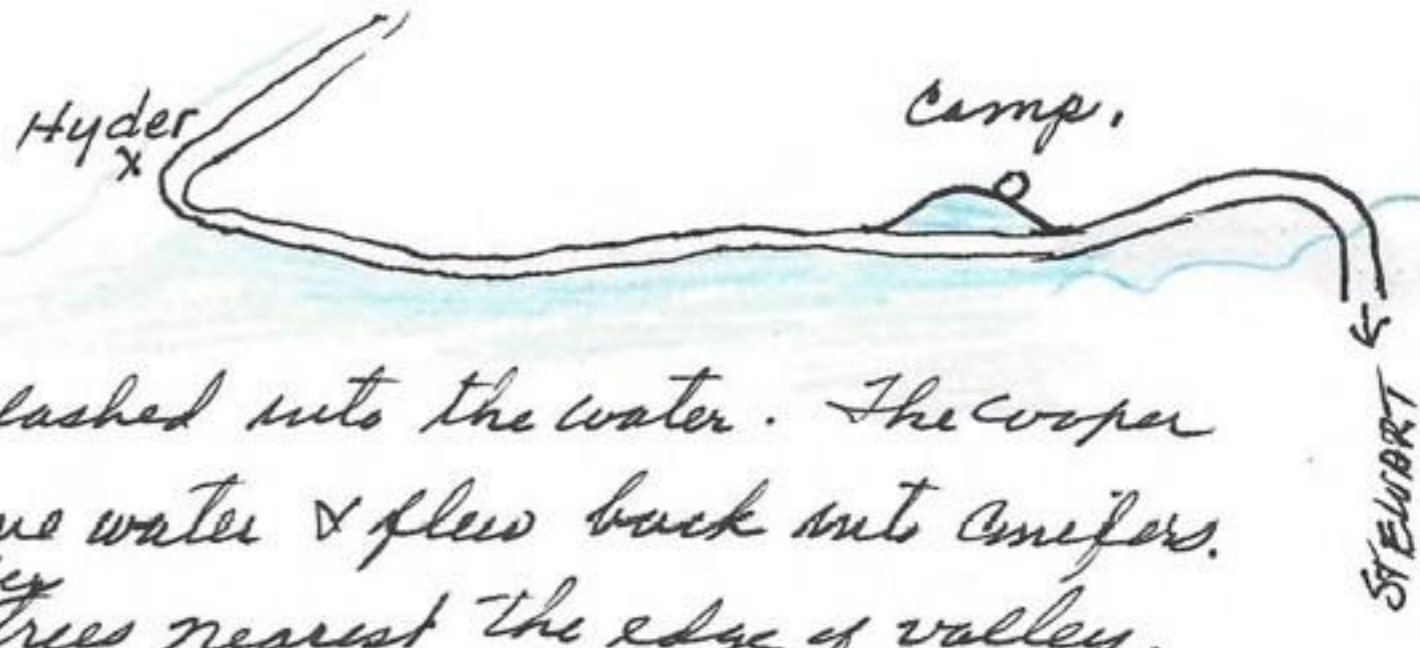 Hyder
x
Camp.
lashed into the water. The Cooper
ue water & flew back into Conifers.
trees nearest the edge of valley.
STEWART